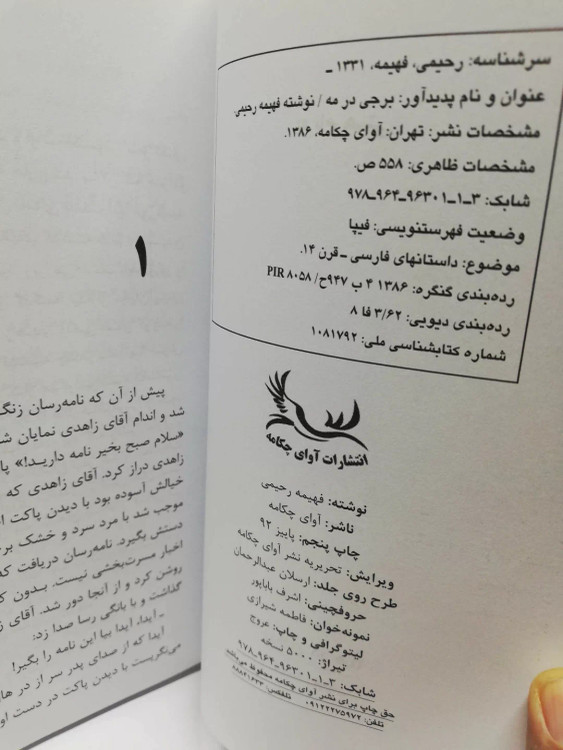 سرشناسه: رحیمی، فهیمه، ۱۳۳۱ ـ
عنوان و نام پدیدآور: برجی در مه / نوشته فهیمه رحیمی.
مشخصات نشر: تهران: آوای چکامه، ۱۳۸۶.
مشخصات ظاهری: ۵۵۸ ص.
شابک: ۳ـ۱ـ۹۶۳۰۱ـ۹۶۴ـ۹۷۸
وضعیت فهرستنویسی: فیپا
موضوع: داستانهای فارسی ـ قرن ۱۴.
رده‌بندی کنگره: ۱۳۸۶ ۴ ب ۹۴۷ح/ PIR ۸۰۵۸
رده‌بندی دیویی: ۳/۶۲ فا ۸
شماره کتابشناسی ملی: ۱۰۸۱۷۹۲
انتشارات آوای چکامه
نوشته: فهیمه رحیمی
ناشر: آوای چکامه
چاپ پنجم: پاییز ۹۲
ویرایش: تحریریه نشر آوای چکامه
طرح روی جلد: ارسلان عبدالرحمان
حروفچینی: اشرف باباپور
نمونه‌خوان: فاطمه شیرازی
لیتوگرافی و چاپ: عروج
تیراژ: ۵۰۰۰ نسخه
شابک: ۳ـ۱ـ۹۶۳۰۱ـ۹۶۴ـ۹۷۸
حق چاپ برای نشر آوای چکامه محفوظ می‌باشد
تلفن: ۰۹۱۲۲۲۷۵۹۷۲ تلفکس:
۱
پیش از آن که نامه‌رسان زنگ
شد و اندام آقای زاهدی نمایان
«سلام صبح بخیر نامه دارید!»
زاهدی دراز کرد. آقای زاهدی که
خیالش آسوده بود با دیدن پاکت
موجب شد با مرد سرد و خشک
دستش بگیرد. نامه‌رسان دریافت که
اخبار مسرت‌بخشی نیست. بدون
روشن کرد و از آنجا دور شد. آقای
گذاشت و با بانگی رسا صدا زد:
ـ آیدا، آیدا بیا این نامه را بگیر!
آیدا که از صدای پدر سر از در
می‌نگریست با دیدن پاکت در دست او